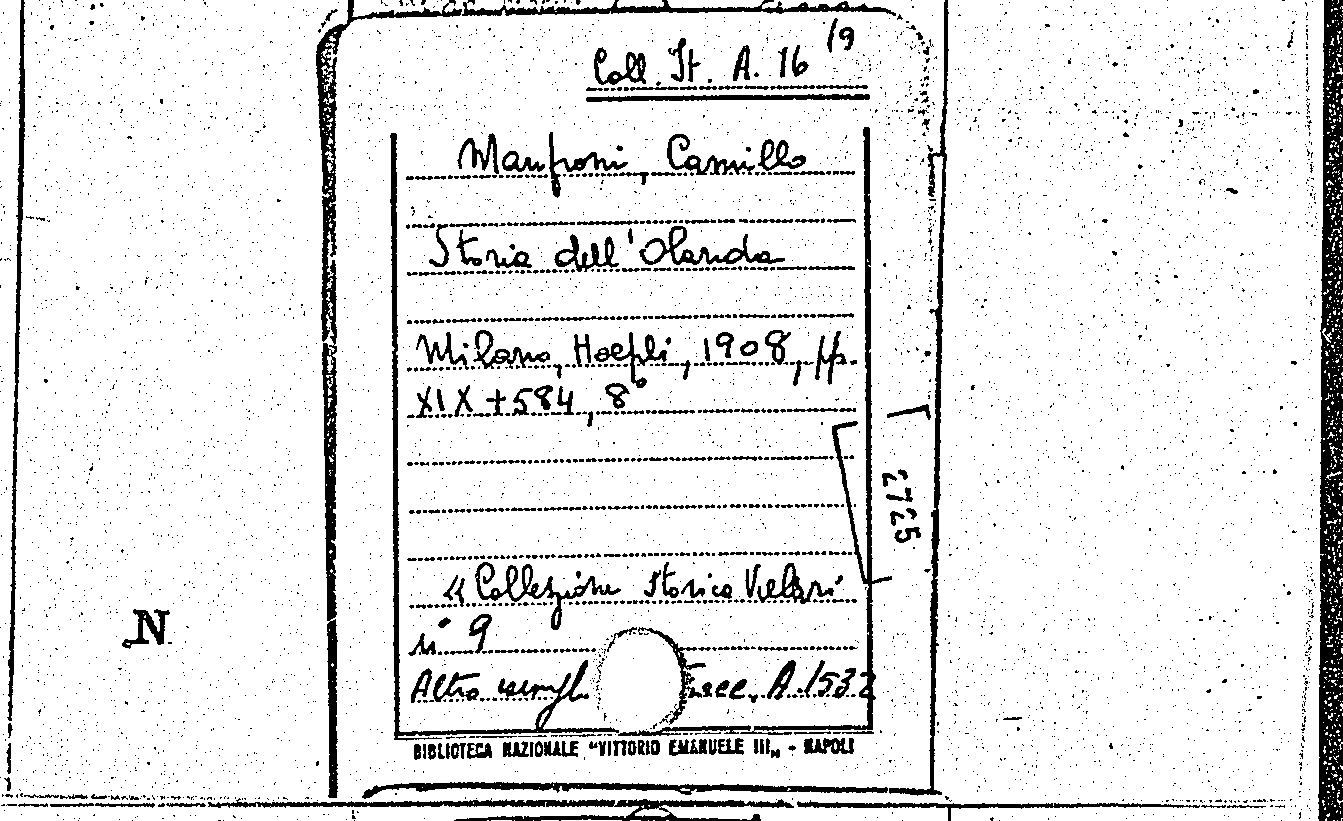 Coll. It. A. 16 /9
Manfroni, Camillo
Storia dell'Olanda
Milano, Hoepli, 1908, pp.
XIX + 584, 8°
2725
« Collezione Storica Villari
n° 9
N
Altro esempl. A. 1532
BIBLIOTECA NAZIONALE "VITTORIO EMANUELE III„ - NAPOLI